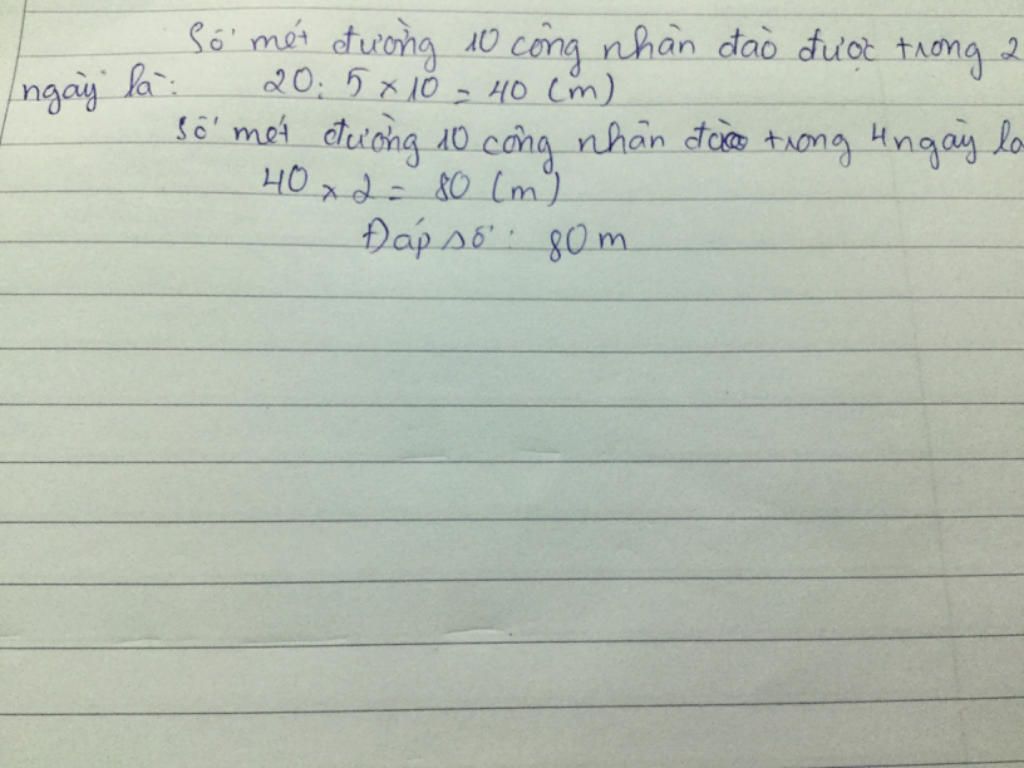 Số mét đường 10 công nhân đào được trong 2
ngày là: 20 : 5 x 10 = 40 (m)
Số mét đường 10 công nhân đào trong 4 ngày là
40 x 2 = 80 (m)
Đáp số : 80 m